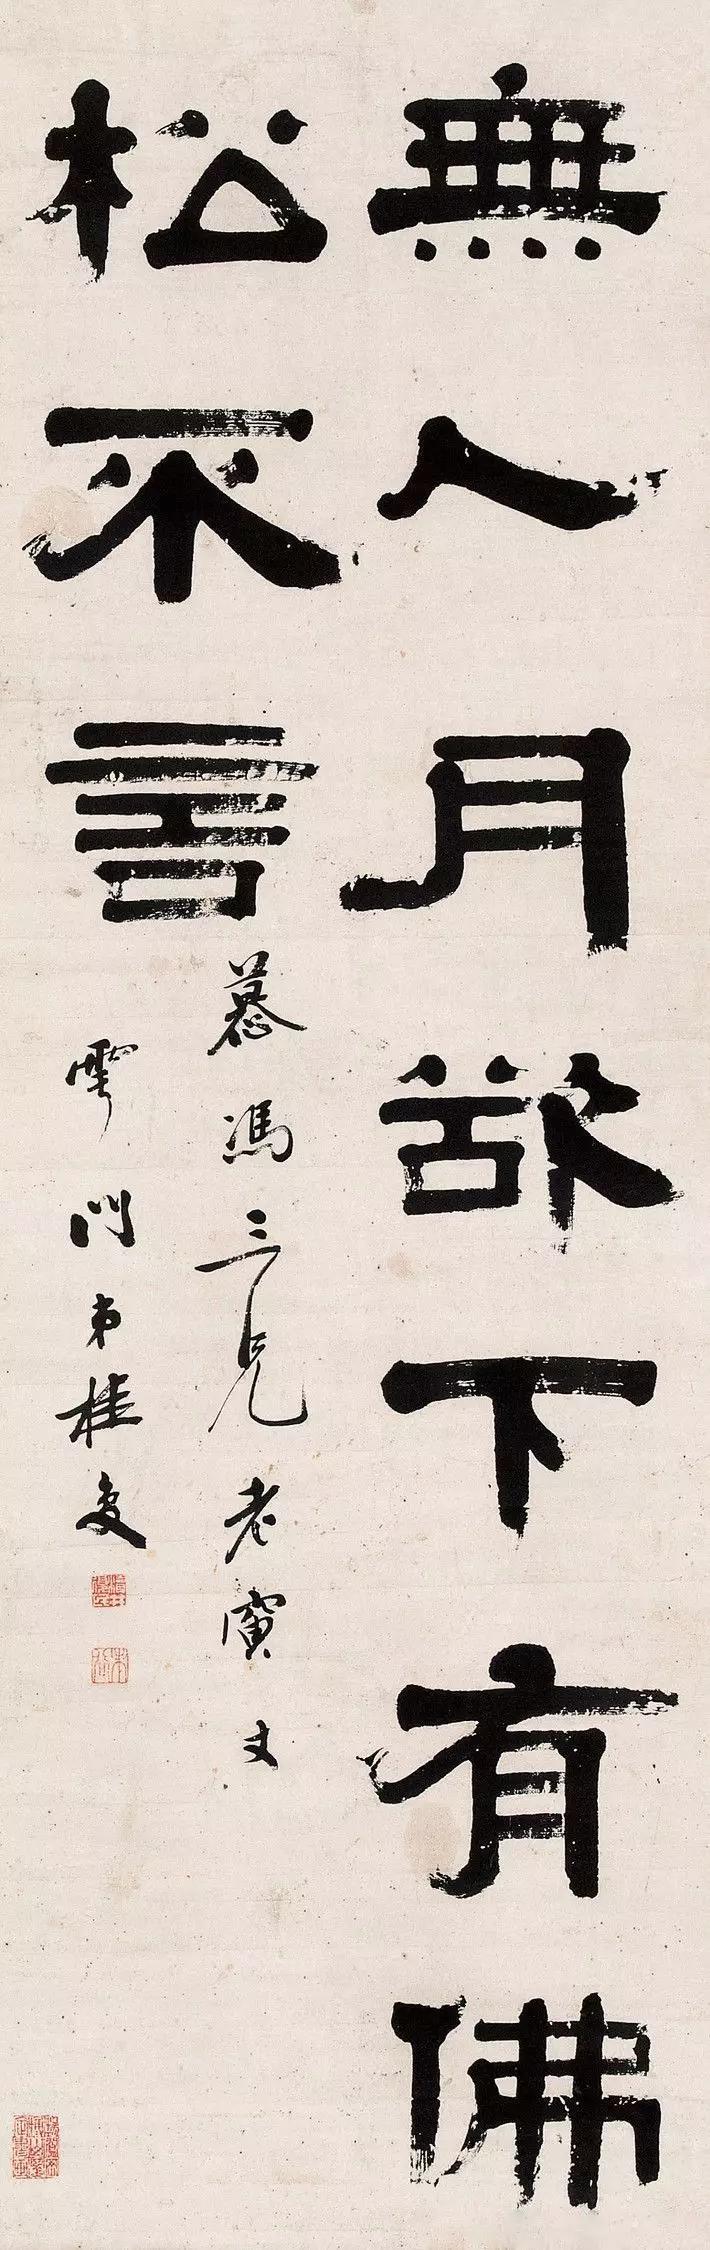 無人月欲下有佛
松不言
慕馮三兄老寅丈
雲門弟桂馥